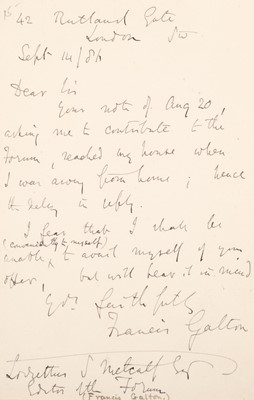 42 Rutland Gate
London SW
Sept 14/86
Dear Sir
Your note of Aug 20,
asking me to contribute to the
Forum, reached my house when
I was away from home; hence
the delay in reply.
I fear that I shall be
(conveniently to myself)
unable, to avail myself of your
offer, but will bear it in mind
Yrs faithfully
Francis Galton
Lorettus S Metcalf Esq
Editor of the Forum
(Francis Galton.)